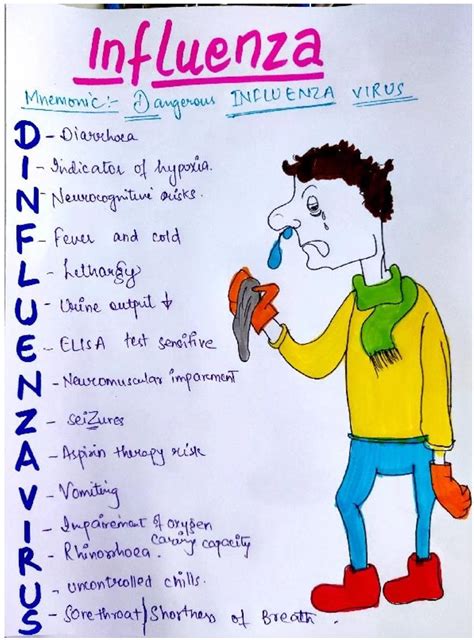 Influenza
Mnemonic:- Dangerous INFLUENZA VIRUS
D - Diarrhoea
I - Indicator of hypoxia.
N - Neurocognitive risks.
F - Fever and cold
L - Lethargy
U - Urine output ↓
E - ELISA test sensitive
N - Neuromuscular imparment
Z - seiZures
A - Aspirin therapy risk
V - Vomiting
I - Impairement of oxygen
caring capacity
R - Rhinorrhoea.
U - uncontrolled chills.
S - Sorethroat/Shortness of Breath.